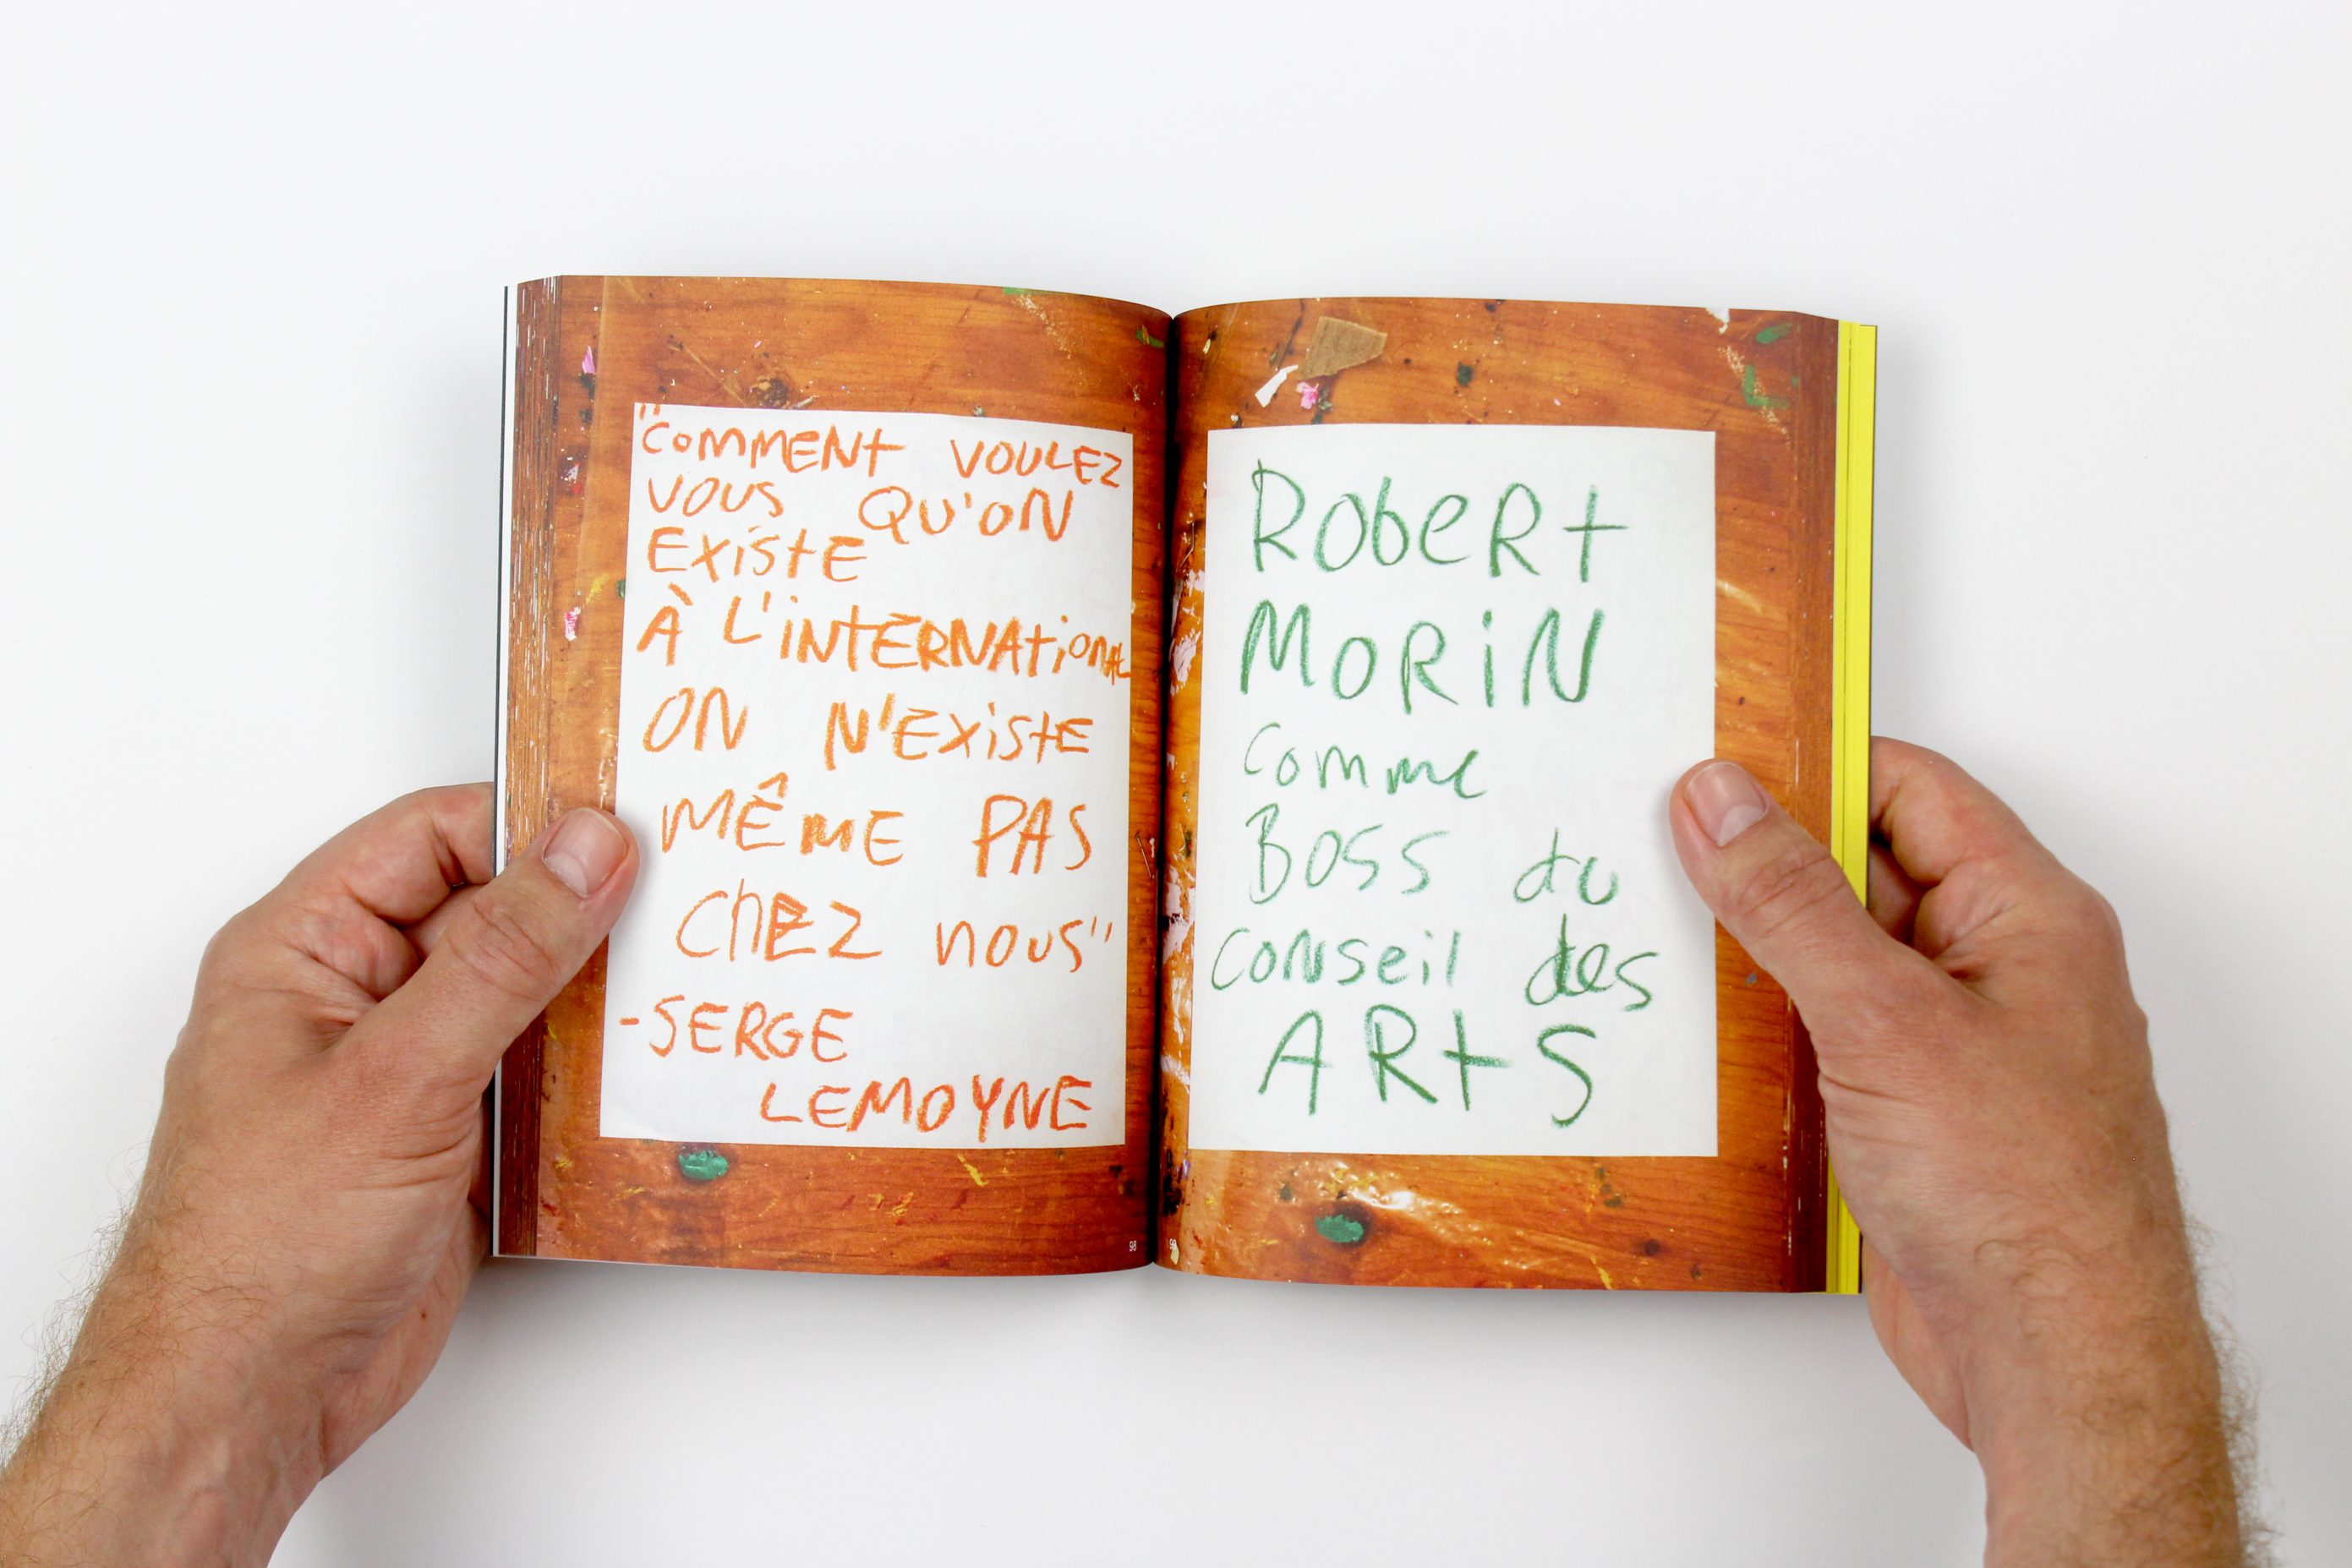 "COMMENT VOULEZ
VOUS QU'ON
EXISTE
À L'INTERNATIONAL
ON N'EXISTE
MÊME PAS
CHEZ NOUS"
-SERGE
LEMOYNE
98
ROBERT
MORIN
comme
BOSS du
CONSEIL des
ARTS